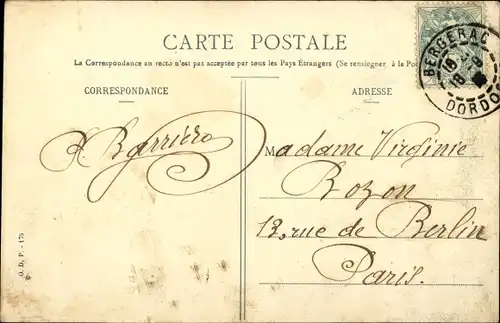 CARTE POSTALE
La Correspondance au recto n'est pas acceptée par tous les Pays Étrangers (Se renseigner à la Po
CORRESPONDANCE
ADRESSE
BERGERAC
DORDO
Madame Virginie
Rozon
13, rue de Berlin
Paris.
O. D. P. - 178